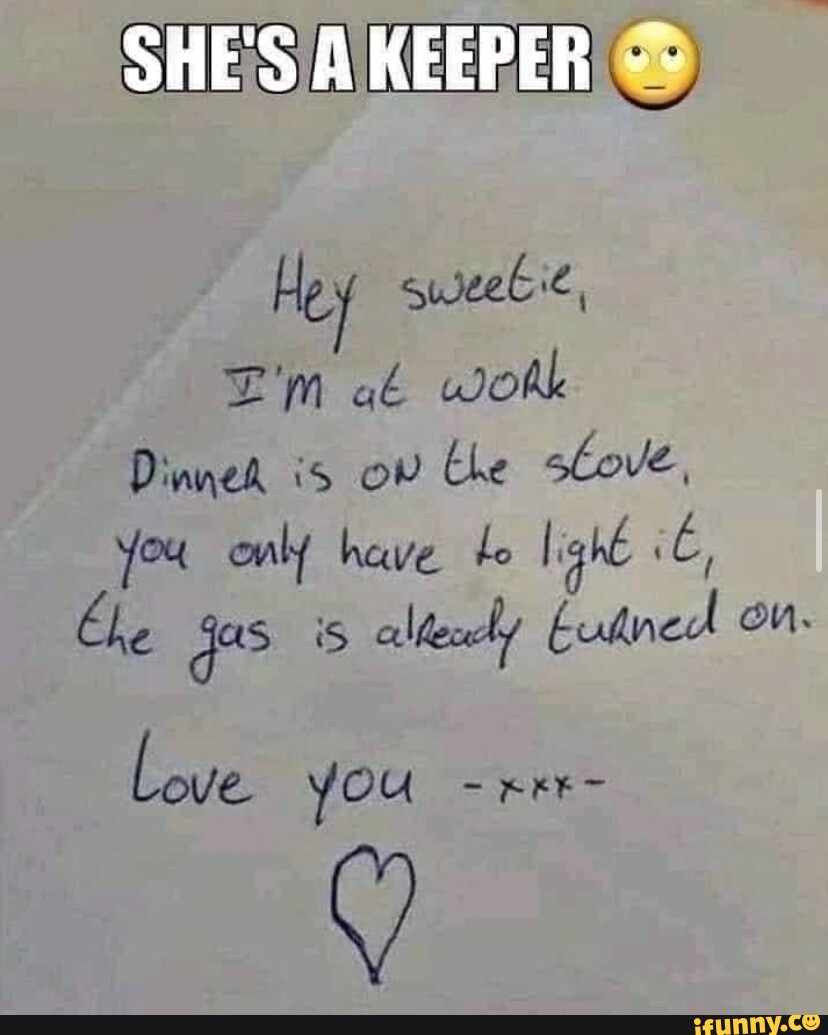 SHE'S A KEEPER 🙄
Hey sweetie,
I'm at work
Dinner is on the stove,
you only have to light it,
the gas is already turned on.
Love you -xxx-
ifunny.co